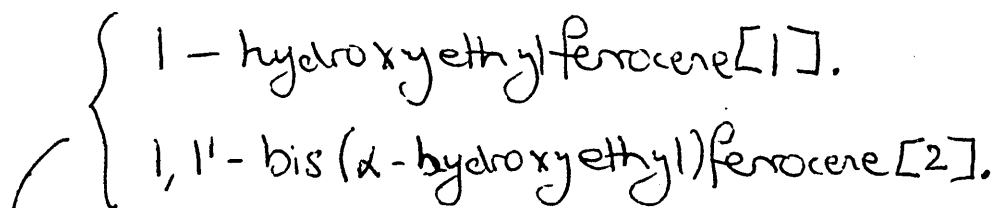 1-hydroxyethylferrocene[1].
1,1'-bis(α-hydroxyethyl)ferrocene[2].